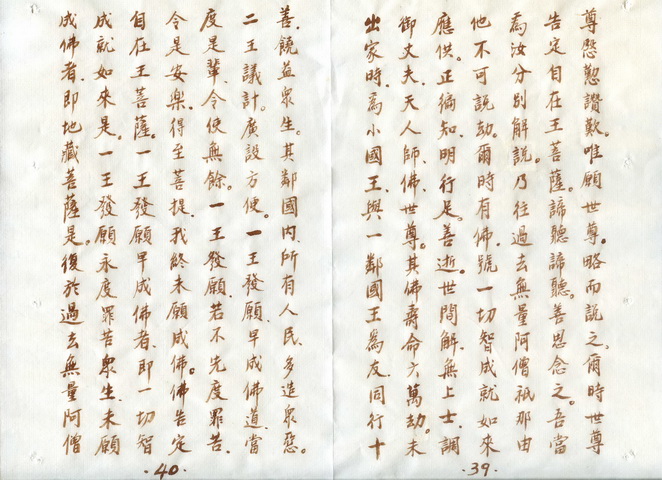 尊慇懃讚歎。唯願世尊。略而說之。爾時世尊
告定自在王菩薩。諦聽諦聽。善思念之。吾當
為汝分別解說。乃往過去無量阿僧祇那由
他不可說劫。爾時有佛。號一切智成就如來
應供。正徧知。明行足。善逝。世間解。無上士。調
御丈夫。天人師。佛。世尊。其佛壽命六萬劫。未
出家時。為小國王。與一鄰國王為友。同行十
·39·
善。饒益眾生。其鄰國內。所有人民。多造眾惡。
二王議計。廣設方便。一王發願。早成佛道。當
度是輩。令使無餘。一王發願。若不先度罪苦。
令是安樂。得至菩提。我終未願成佛。佛告定
自在王菩薩。一王發願早成佛者。即一切智
成就如來是。一王發願永度罪苦眾生。未願
成佛者。即地藏菩薩是。復於過去無量阿僧
·40·